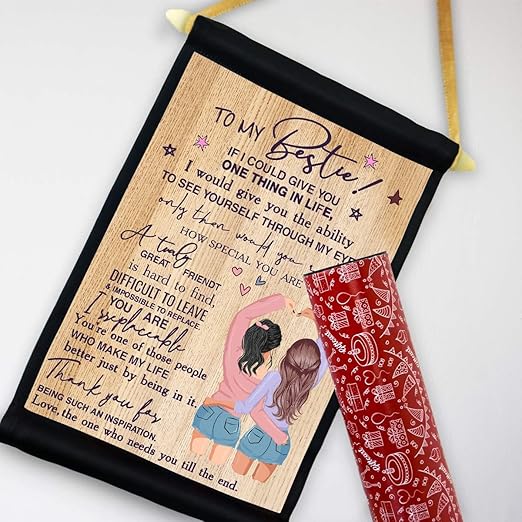 TO MY Bestie!
IF I COULD GIVE YOU
ONE THING IN LIFE,
I would give you the ability
TO SEE YOURSELF THROUGH MY EYE
only then would you
HOW SPECIAL YOU ARE
A truly
GREAT FRIENDT
is hard to find,
DIFFICULT TO LEAVE
& IMPOSSIBLE TO REPLACE
YOU ARE
Irreplaceable
You're one of those people
WHO MAKE MY LIFE
better just by being in it.
Thank you for
BEING SUCH AN INSPIRATION.
Love, the one who needs you till the end.